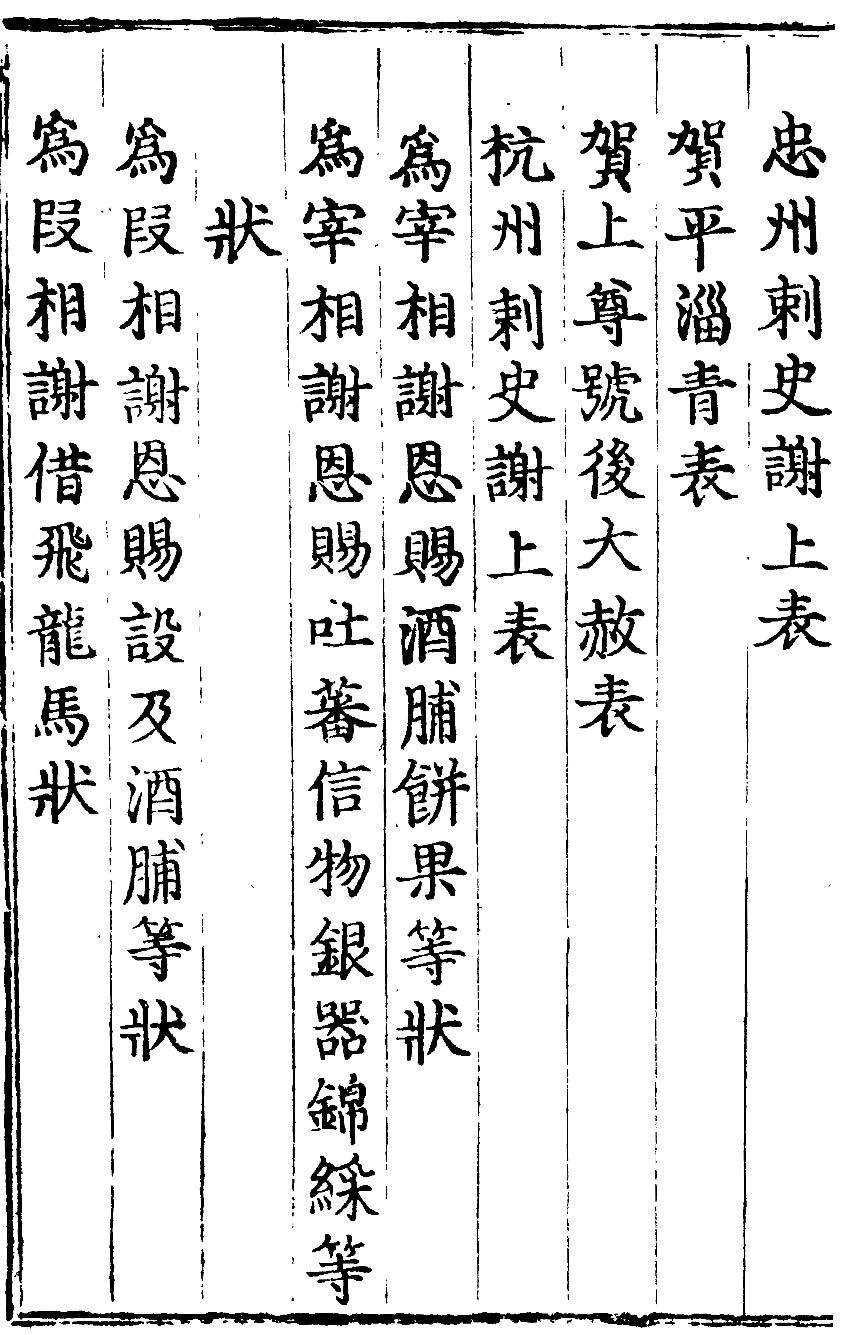 忠州刺史謝上表
賀平淄青表
賀上尊號後大赦表
杭州刺史謝上表
爲宰相謝恩賜酒脯餅果等狀
爲宰相謝恩賜吐蕃信物銀器錦綵等
狀
爲段相謝恩賜設及酒脯等狀
爲段相謝借飛龍馬狀